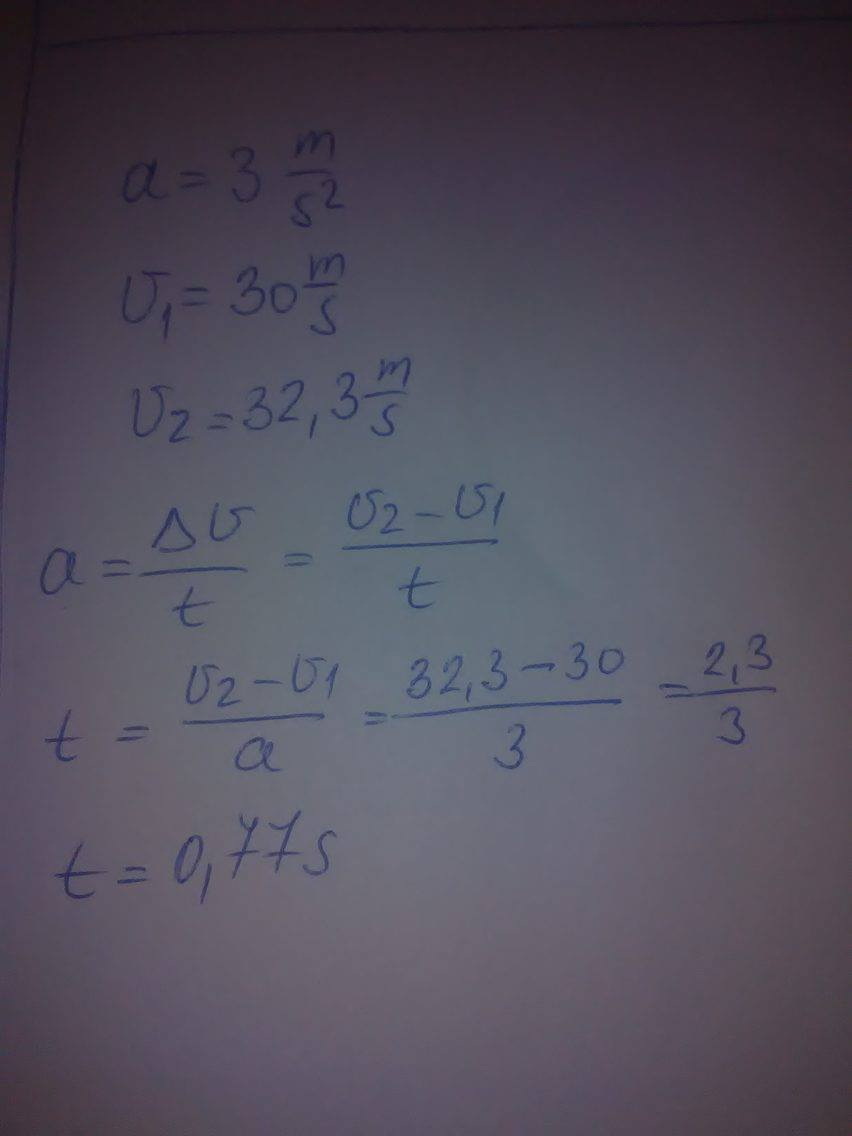 a = 3 m/s²
v₁ = 30 m/s
v₂ = 32,3 m/s
a = Δv/t = v₂ - v₁/t
t = v₂ - v₁/a = 32,3 - 30/3 = 2,3/3
t = 0,77s